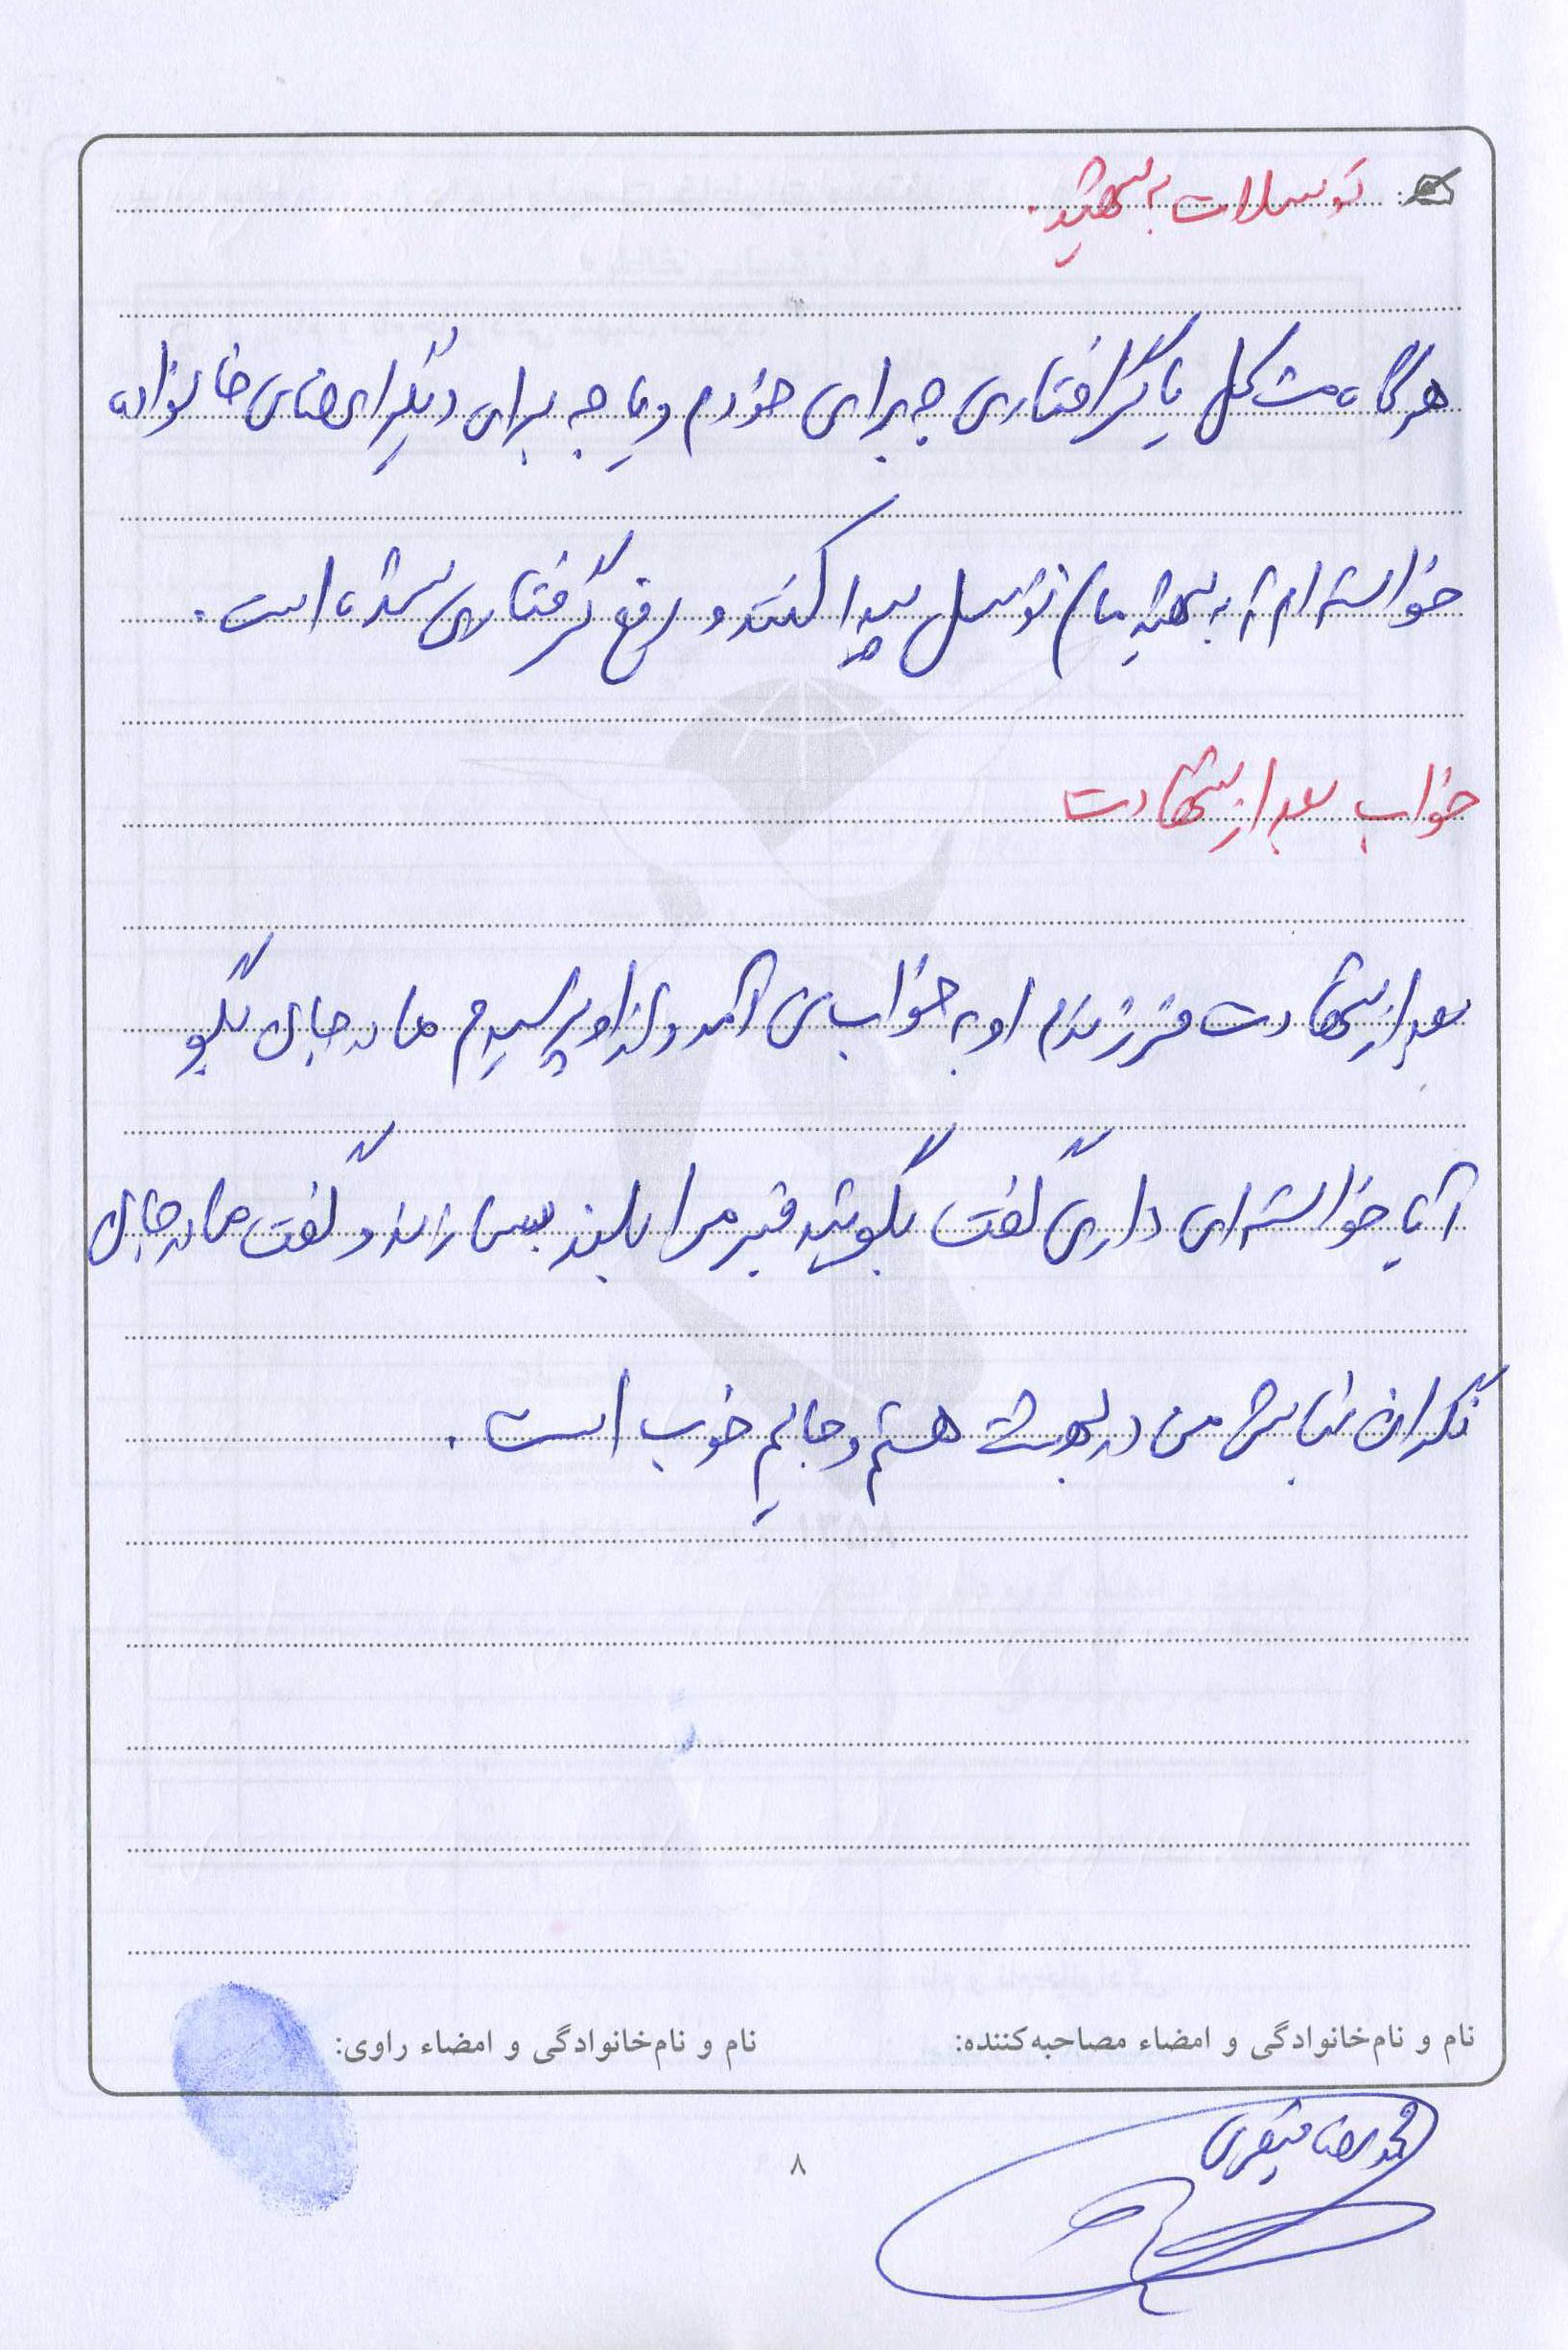 توسلات به شهید.
هرگاه مشکل یا گرفتاری چه برای خودم و یا چه برای دیگر اعضای خانواده
خواسته ام تا به شهید مان توسل پیدا کنند و رفع گرفتاری شده است.
خواب بعد از شهادت
بعد از شهادت فرزندم او به خواب من آمد و از او پرسیدم مادر جان بگو
آیا خواسته ای داری گفت بگوئید قبر مرا بلند بسازند و گفت مادر جان
نگران نباش من در بهشت هستم و جایم خوب است.
نام و نام‌خانوادگی و امضاء مصاحبه‌کننده:
نام و نام‌خانوادگی و امضاء راوی:
محمدرضا
۸